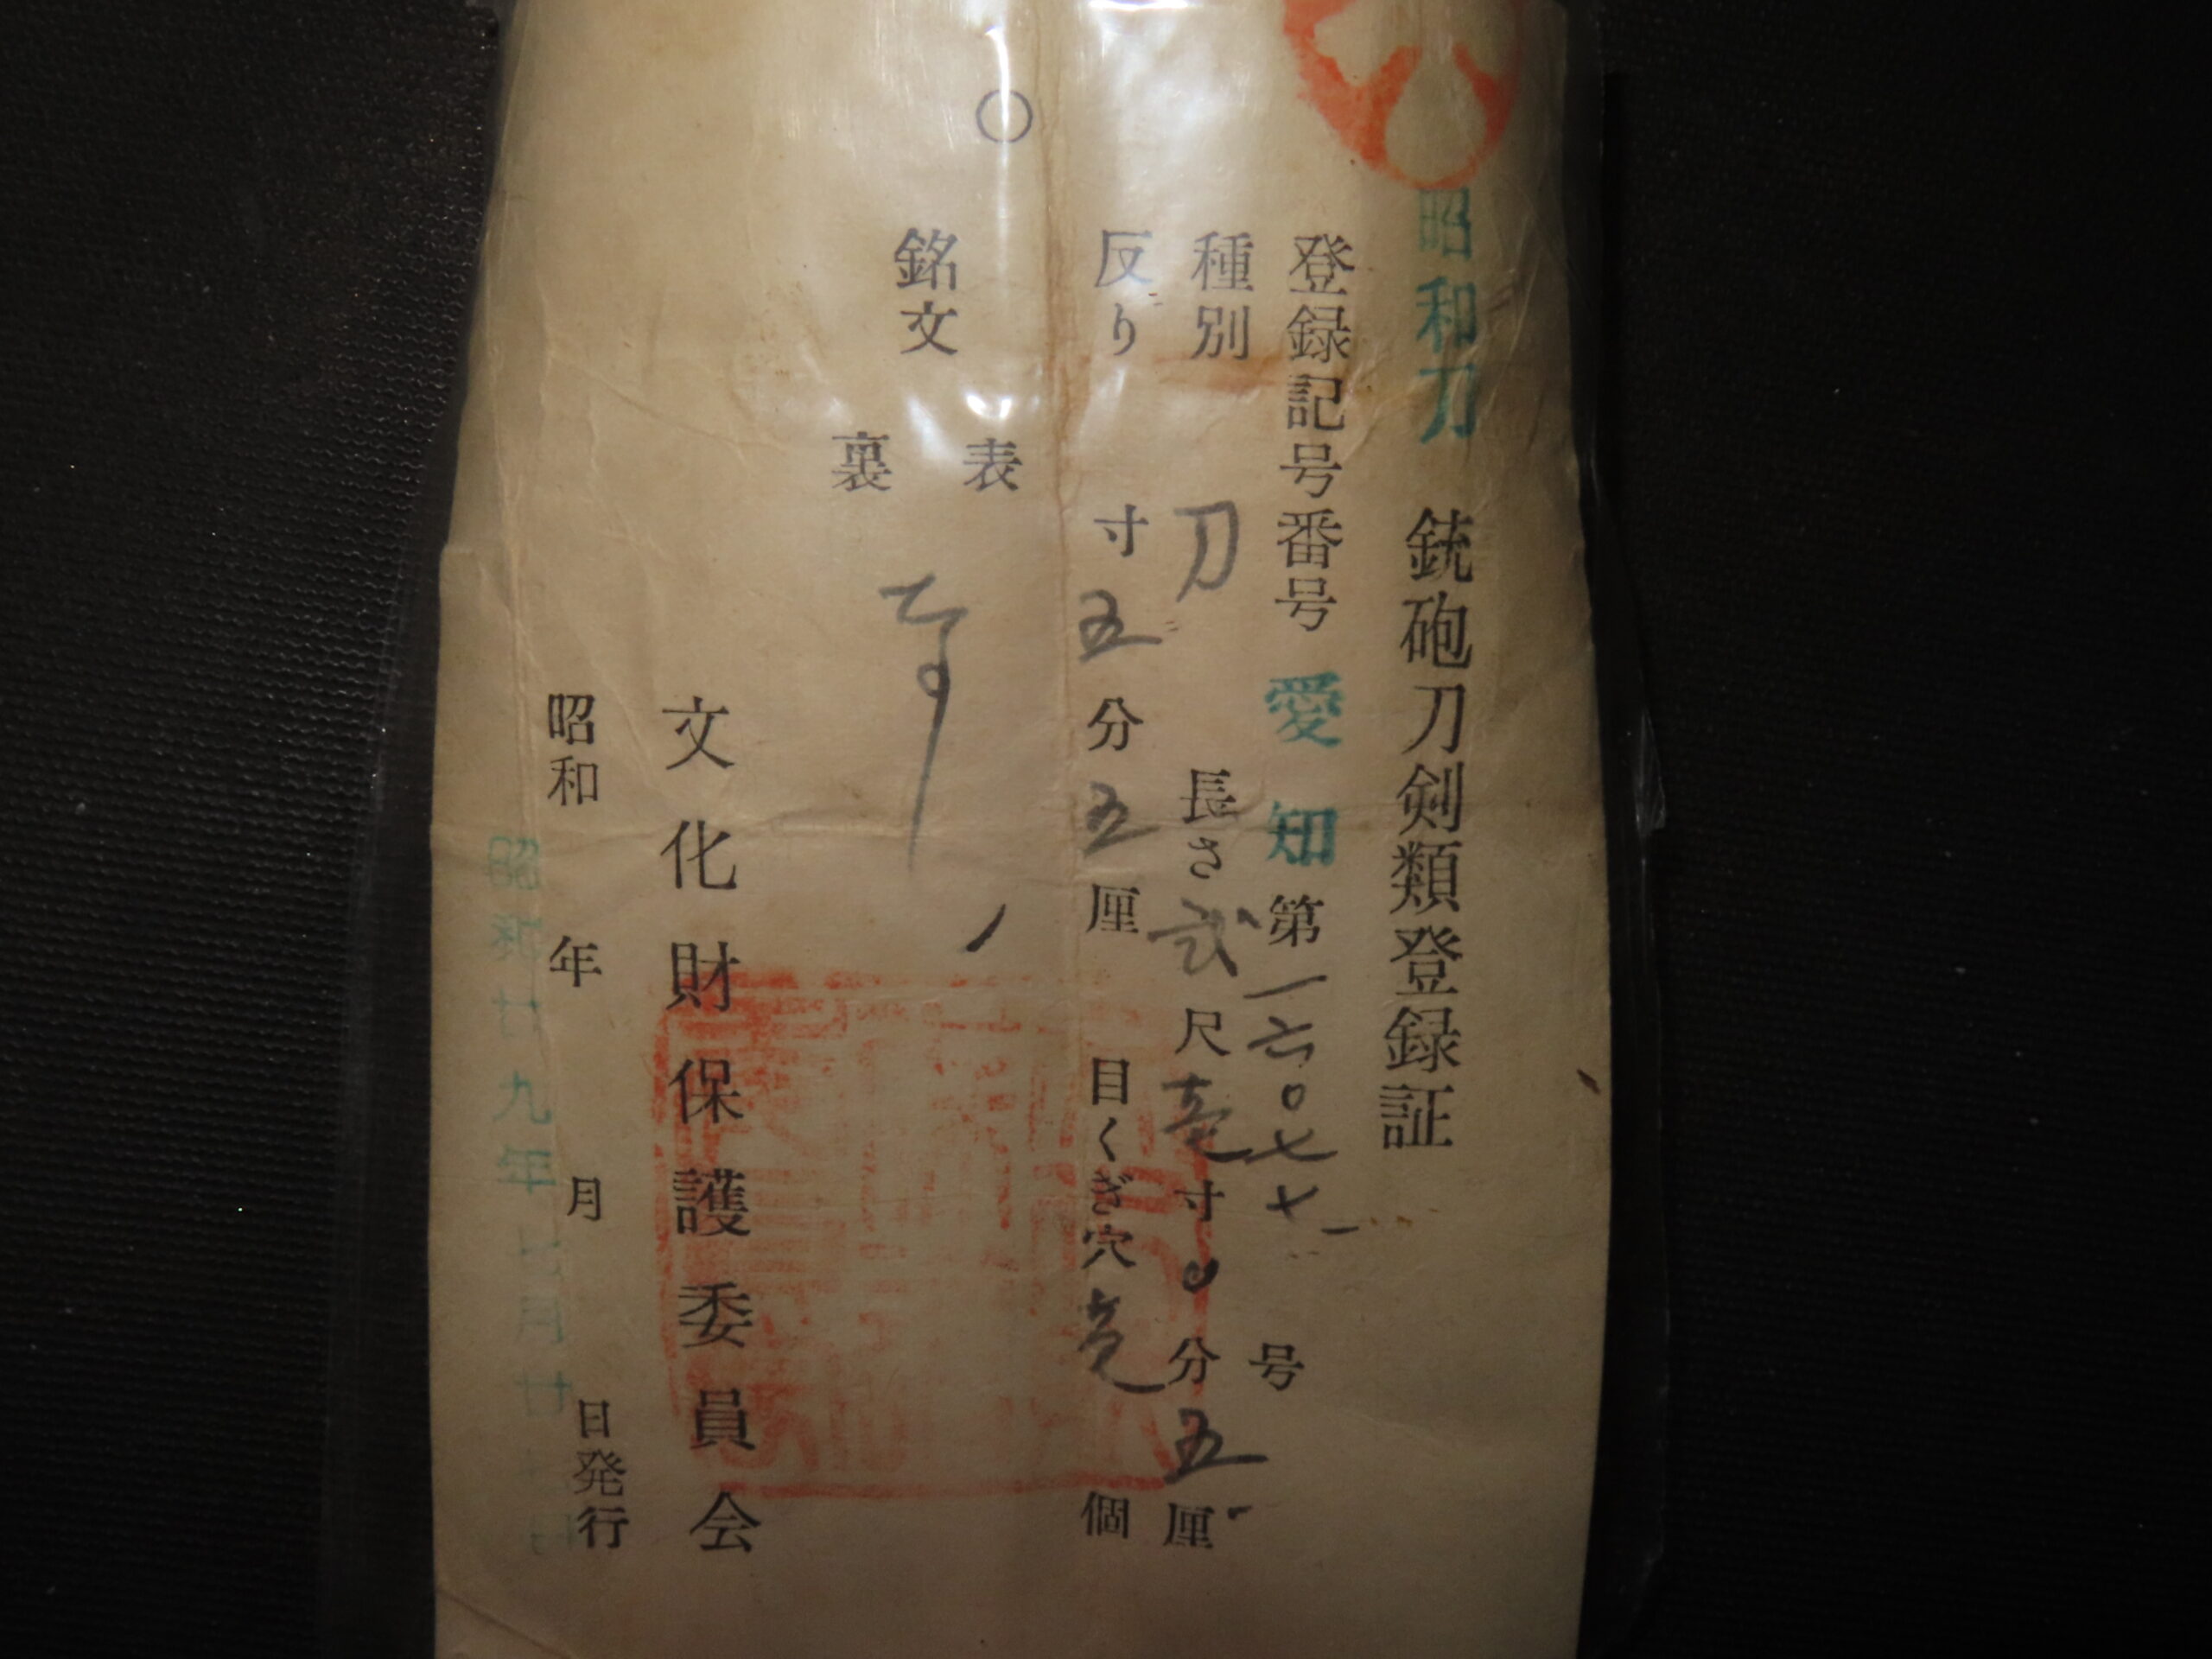 昭和刀
銃砲刀剣類登録証
登録記号番号 愛知 第一六〇七七号
種別 刀 長さ 弐尺壱寸〇分五厘
反り 寸五分五厘 目くぎ穴 壱個
○
銘文 表
裏
文化財保護委員会
昭和 年 月 日発行
昭和廿九年